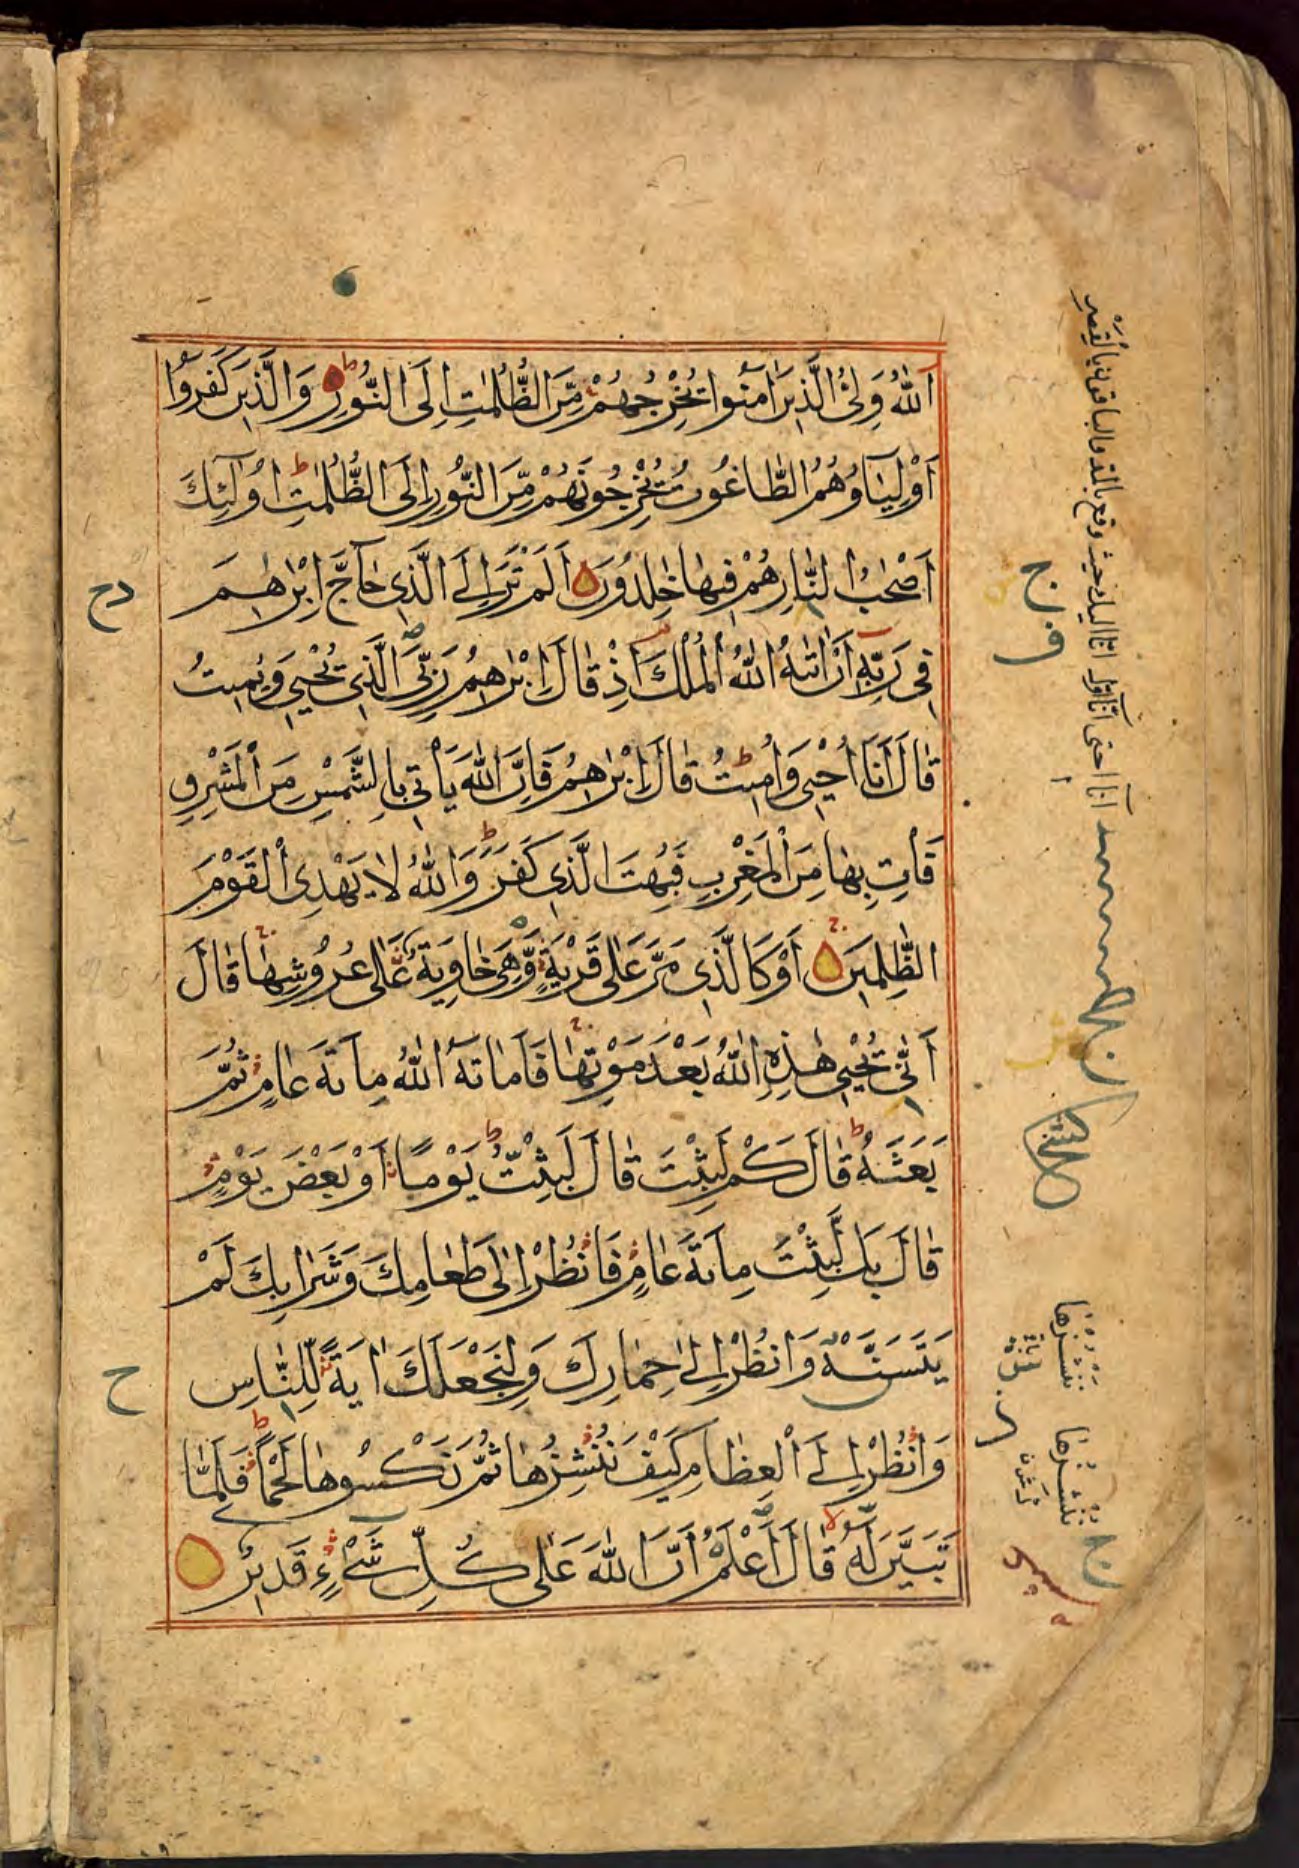 اَللّٰهُ وَلِیُّ الَّذِینَ اٰمَنُوا یُخْرِجُهُمْ مِّنَ الظُّلُمٰتِ اِلَی النُّورِ وَالَّذِینَ كَفَرُوا
اَوْلِیَاؤُهُمُ الطَّاغُوتُ یُخْرِجُونَهُمْ مِّنَ النُّورِ اِلَی الظُّلُمٰتِ اُولٰٓئِكَ
اَصْحٰبُ النَّارِ هُمْ فِیهَا خٰلِدُونَ اَلَمْ تَرَ اِلَی الَّذِی حَاجَّ اِبْرٰهٖمَ
فِی رَبِّهِ اَنْ اٰتٰىهُ اللّٰهُ الْمُلْكَ اِذْ قَالَ اِبْرٰهٖمُ رَبِّیَ الَّذِی یُحْیٖی وَیُمِیتُ
قَالَ اَنَا اُحْیٖی وَاُمِیتُ قَالَ اِبْرٰهٖمُ فَاِنَّ اللّٰهَ یَاْتِی بِالشَّمْسِ مِنَ الْمَشْرِقِ
فَاْتِ بِهَا مِنَ الْمَغْرِبِ فَبُهِتَ الَّذِی كَفَرَ وَاللّٰهُ لَا یَهْدِی الْقَوْمَ
الظّٰلِمِینَ اَوْ كَالَّذِی مَرَّ عَلٰی قَرْیَةٍ وَّهِیَ خَاوِیَةٌ عَلٰی عُرُوشِهَا قَالَ
اَنّٰی یُحْیٖی هٰذِهِ اللّٰهُ بَعْدَ مَوْتِهَا فَاَمَاتَهُ اللّٰهُ مِائَةَ عَامٍ ثُمَّ
بَعَثَهُ قَالَ كَمْ لَبِثْتَ قَالَ لَبِثْتُ یَوْمًا اَوْ بَعْضَ یَوْمٍ
قَالَ بَل لَّبِثْتَ مِائَةَ عَامٍ فَانْظُرْ اِلٰی طَعَامِكَ وَشَرَابِكَ لَمْ
یَتَسَنَّهْ وَانْظُرْ اِلٰی حِمَارِكَ وَلِنَجْعَلَكَ اٰیَةً لِّلنَّاسِ
وَانْظُرْ اِلَی الْعِظَامِ كَیْفَ نُنْشِزُهَا ثُمَّ نَكْسُوهَا لَحْمًا فَلَمَّا
تَبَیَّنَ لَهُ قَالَ اَعْلَمُ اَنَّ اللّٰهَ عَلٰی كُلِّ شَیْءٍ قَدِیرٌ
ح
نُنْشِزُهَا
نُنْشِرُهَا